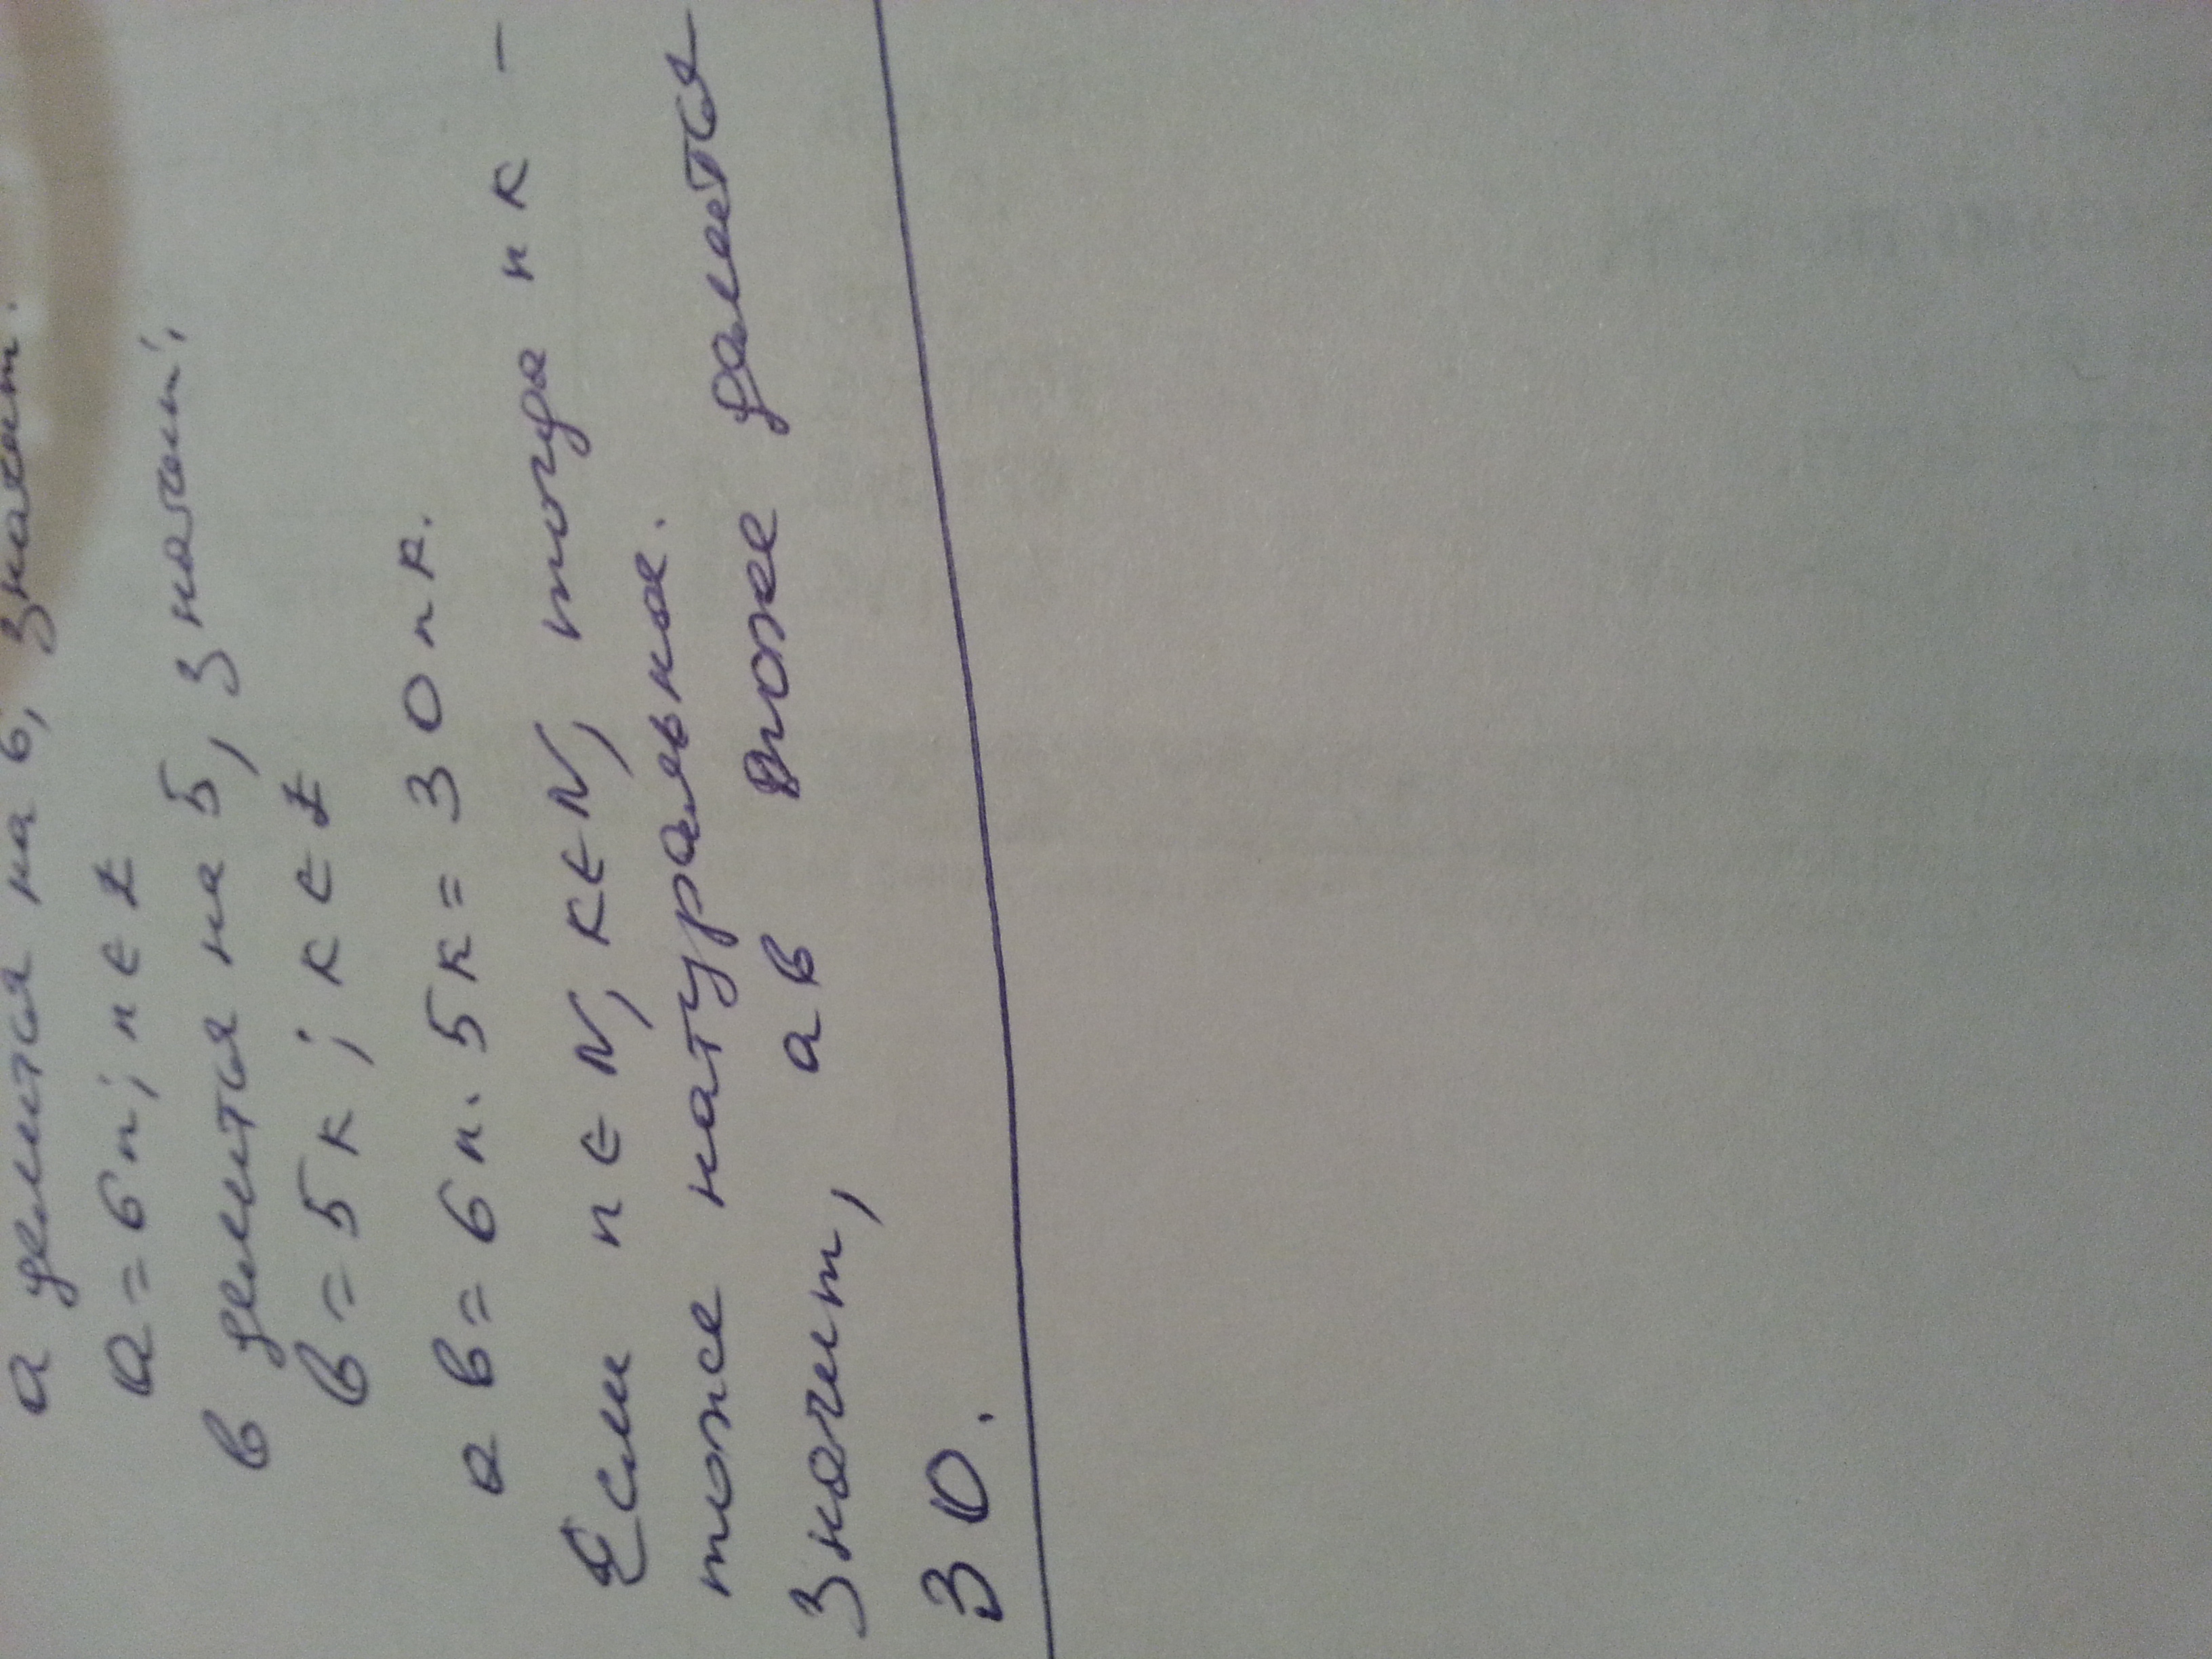 а делится на 6, значит.
а = 6n; n ∈ Z
в делится на 5, значит,
в = 5к; к ∈ Z
ав = 6n · 5к = 30nк.
Если n ∈ N, к ∈ N, тогда nк –
тоже натуральное.
Значит, ав тоже делится
30.